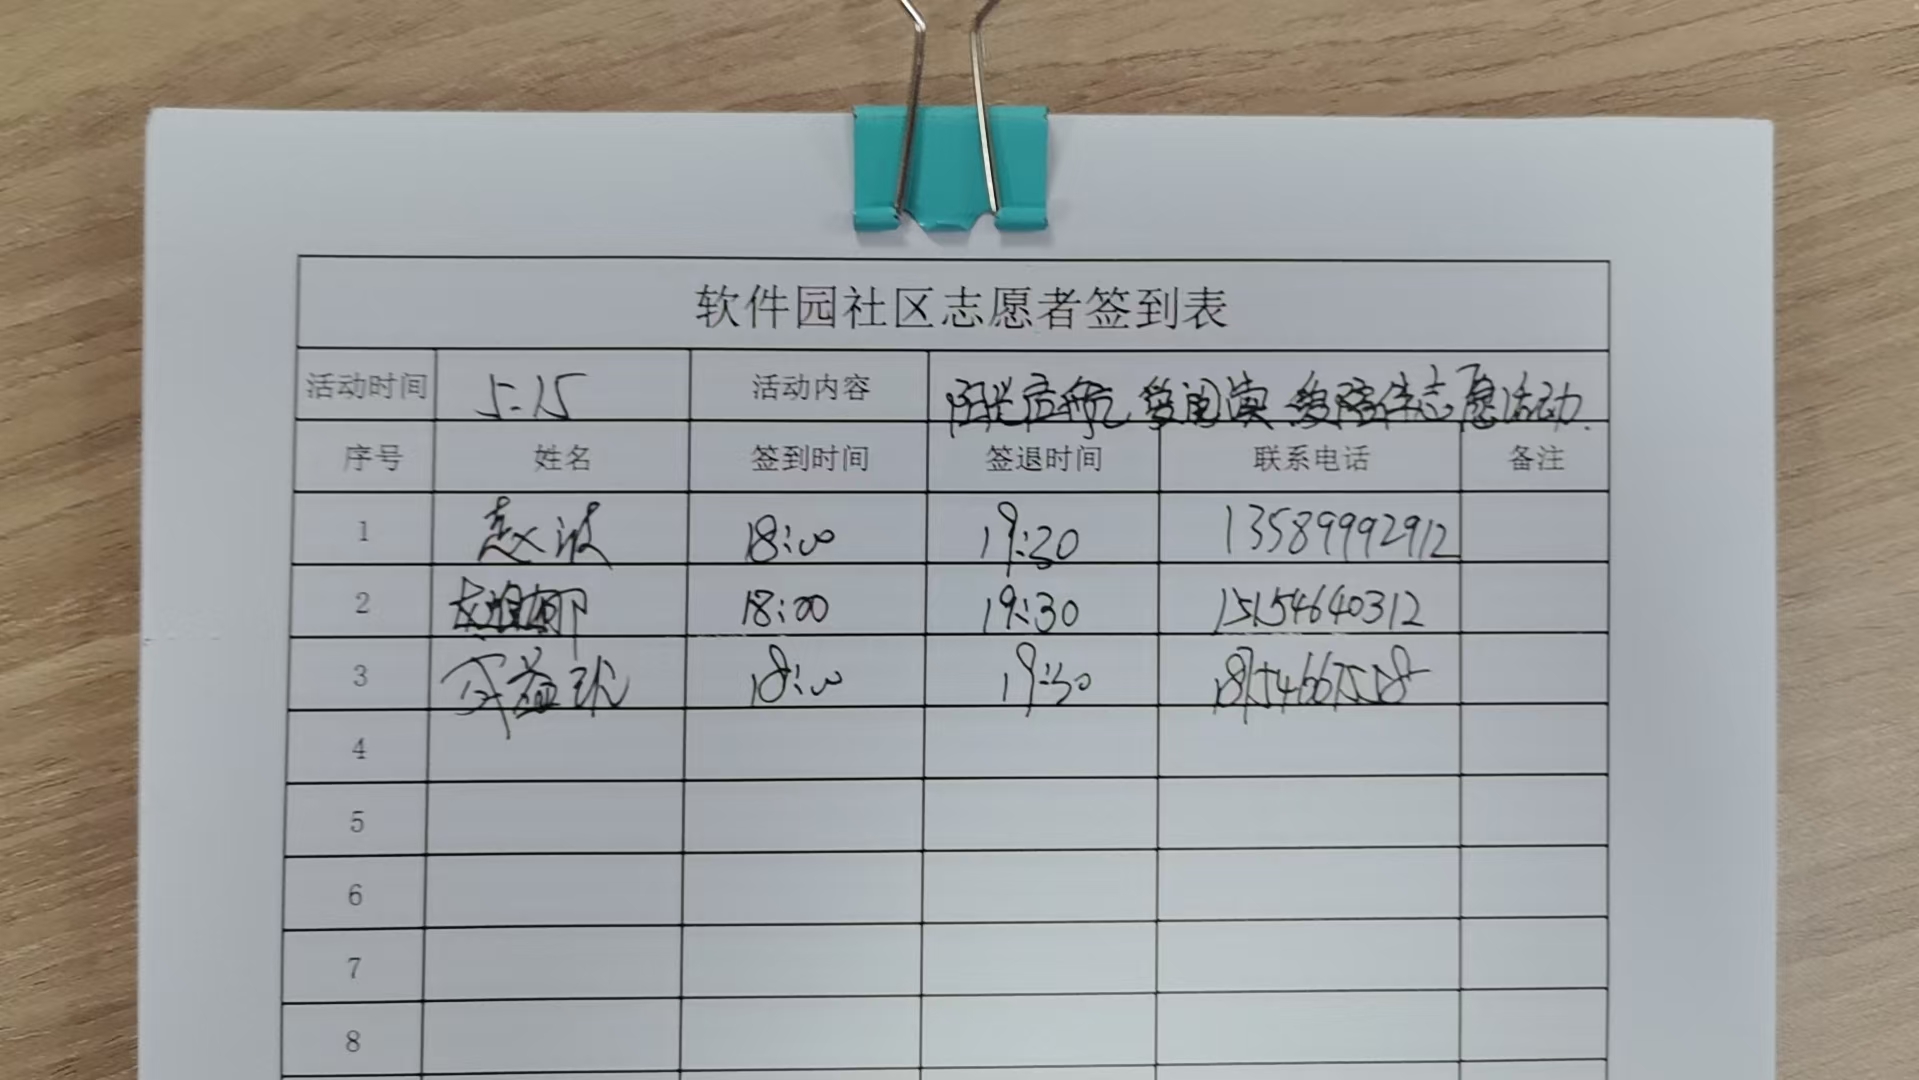 软件园社区志愿者签到表
活动时间 5.15 活动内容 志愿活动.
序号 姓名 签到时间 签退时间 联系电话 备注
1 赵波 18:00 19:30 13589992912
2 18:00 19:30 15154640312
3 18:00 19:30
4
5
6
7
8